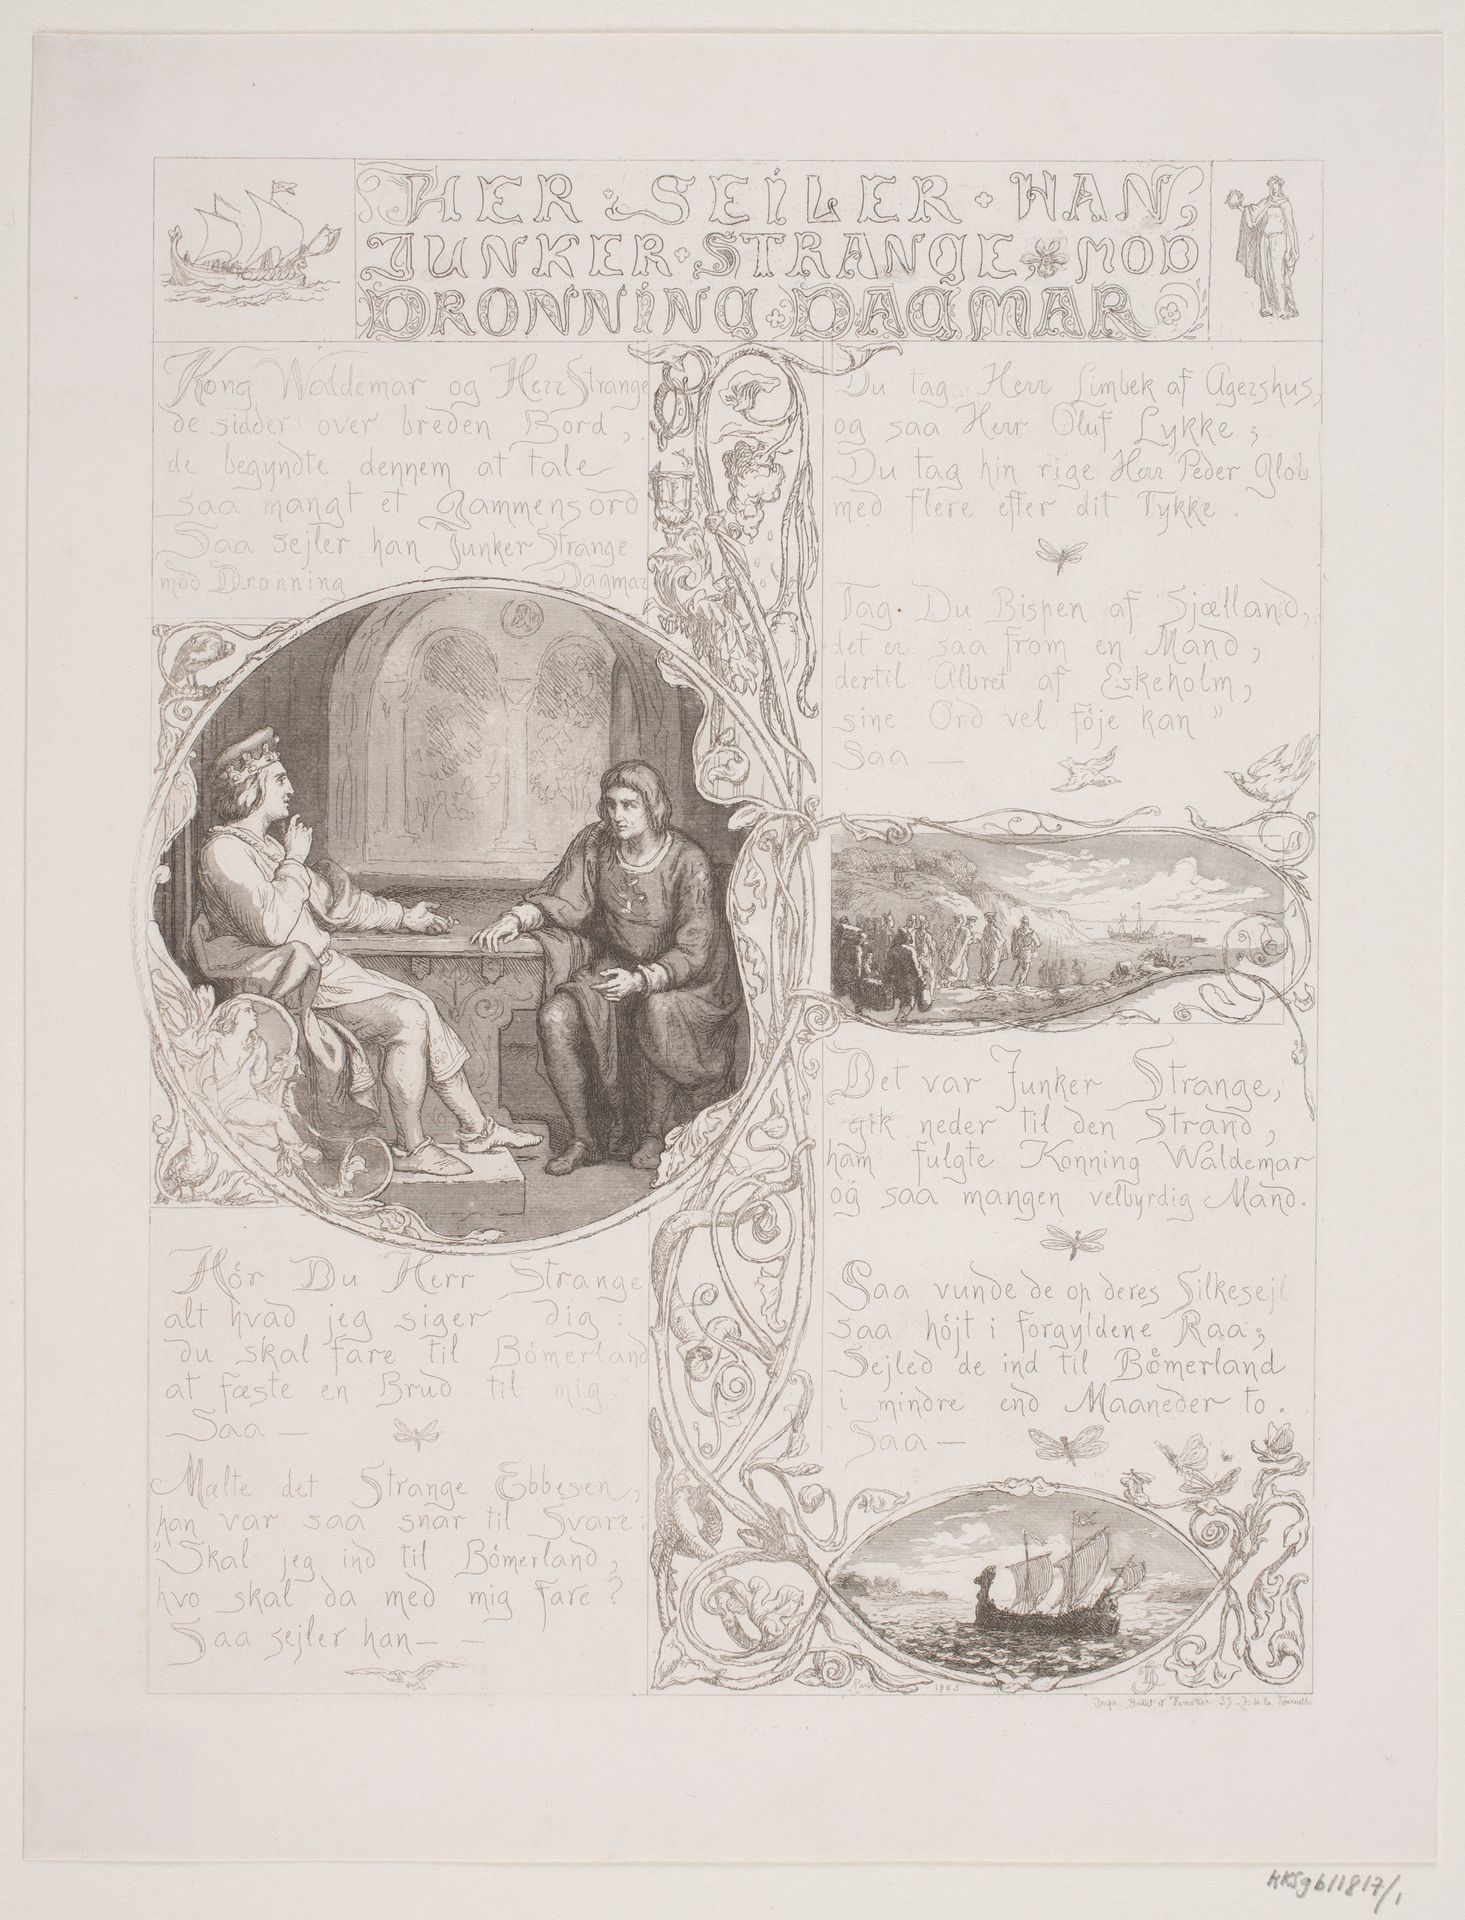 HER SEILER HAN,
JUNKER STRANGE, MOD
DRONNING DAGMAR
Kong Waldemar og Herr Strange
de sidder over breden Bord,
de begyndte dennem at tale
saa mangt et Gammensord
Saa sejler han Junker Strange
mod Dronning Dagmar
Hör Du Herr Strange
alt hvad jeg siger dig:
du skal fare til Bömerland
at fæste en Brud til mig."
Saa —
Mælte det Strange Ebbesen,
han var saa snar til Svare:
"Skal jeg ind til Bömerland,
hvo skal da med mig fare?
Saa sejler han — —
Du tag Herr Limbek af Agershus,
og saa Herr Oluf Lykke;
Du tag hin rige Herr Peder Glob
med flere efter dit Tykke.
Tag Du Bispen af Sjælland,
det er saa from en Mand,
dertil Albret af Eskeholm,
sine Ord vel föje kan"
Saa —
Det var Junker Strange,
gik neder til den Strand,
ham fulgte Konning Waldemar
og saa mangen velbyrdig Mand.
Saa vunde de op deres Silkesejl
saa höjt i forgyldene Raa;
Sejled de ind til Bömerland
i mindre end Maaneder to.
Saa —
Paris 1863
Impr.
HKSgb11817/1